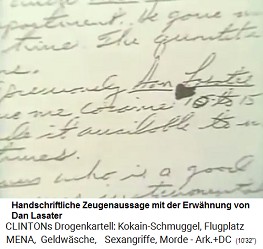 apartment. He gave me
time. The quantite
s.
previously Dan Lasater
me cocaine 10 to 15
available to
times.
who is a good
Handschriftliche Zeugenaussage mit der Erwähnung von
Dan Lasater
CLINTONs Drogenkartell: Kokain-Schmuggel, Flugplatz
MENA, Geldwäsche, Sexangriffe, Morde - Ark.+DC (10'32'')